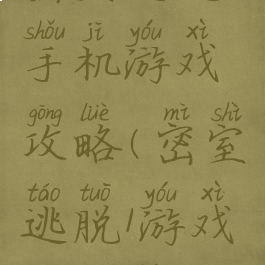 shǒu jī yóu xì
手机游戏
gōng lüè mì shì
攻略(密室
táo tuō yóu xì
逃脱/游戏